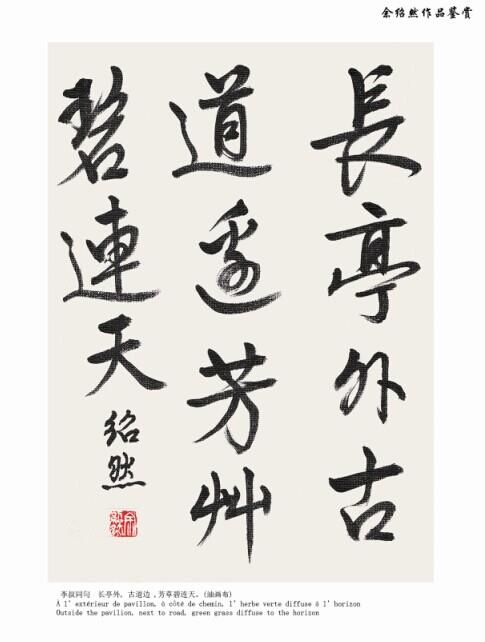 余绍然作品鉴赏
長亭外古
道邊芳艸
碧連天
绍然
李叔同句 长亭外，古道边，芳草碧连天。(油画布)
À l' extérieur de pavillon, ò côté de chemin, l' herbe verte diffuse ò l' horizon
Outside the pavilion, next to road, green grass diffuse to the horizon